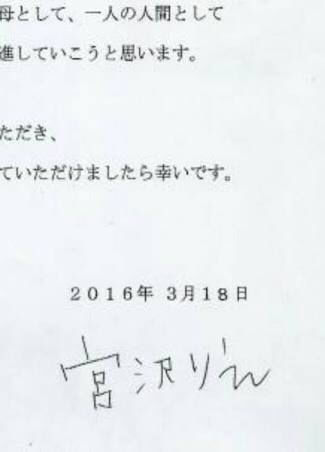 母として、一人の人間として
進していこうと思います。
ただき、
ていただけましたら幸いです。
2016年 3月18日
宮沢りえ